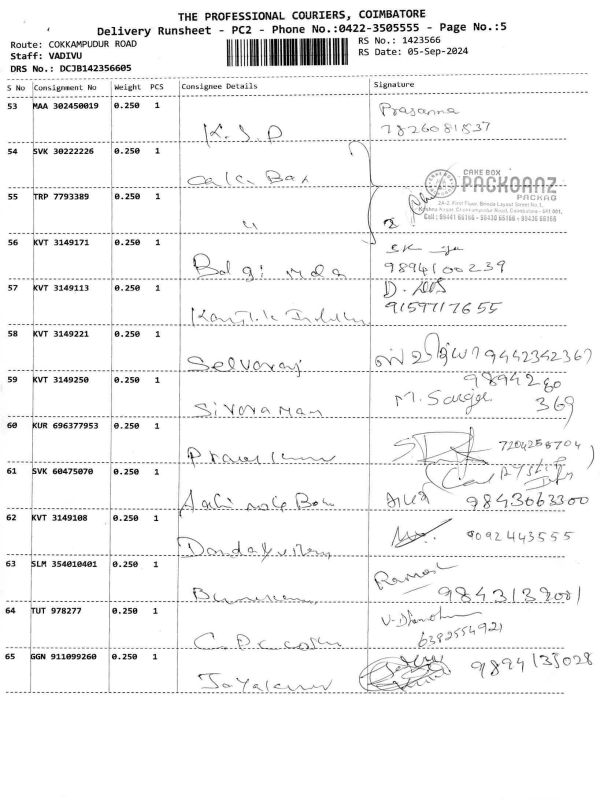 THE PROFESSIONAL COURIERS, COIMBATORE
Delivery Runsheet - PC2 - Phone No.:0422-3505555 - Page No.:5
Route: COKKAMPUDUR ROAD
RS No.: 1423566
Staff: VADIVU
RS Date: 05-Sep-2024
DRS No.: DCJB142356605
S No Consignment No Weight PCS Consignee Details Signature
53 MAA 302450019 0.250 1 Prasanna
K.S.P 7826081837
54 SVK 30222226 0.250 1
Cake Box
CAKE BOX
PACKQANZ
PACKAG
55 TRP 7793389 0.250 1
2A-2, First Floor, Brinda Layout Street No.1,
Coimbatore - 641 001,
Cell : 98441 66166 - 98430 66166 - 98436 66166
56 KVT 3149171 0.250 1
Balaji 9894100239
57 KVT 3149113 0.250 1
9159117655
58 KVT 3149221 0.250 1
Selvaraj 9442342367
59 KVT 3149250 0.250 1 98942 80
Sivaraman M. 369
60 KUR 696377953 0.250 1
7204258704
61 SVK 60475070 0.250 1
9843063300
62 KVT 3149108 0.250 1
9092443555
63 SLM 354010401 0.250 1 Ramesh
9843139001
64 TUT 978277 0.250 1
6382554921
65 GGN 911099260 0.250 1 9894135028
Jayakumar